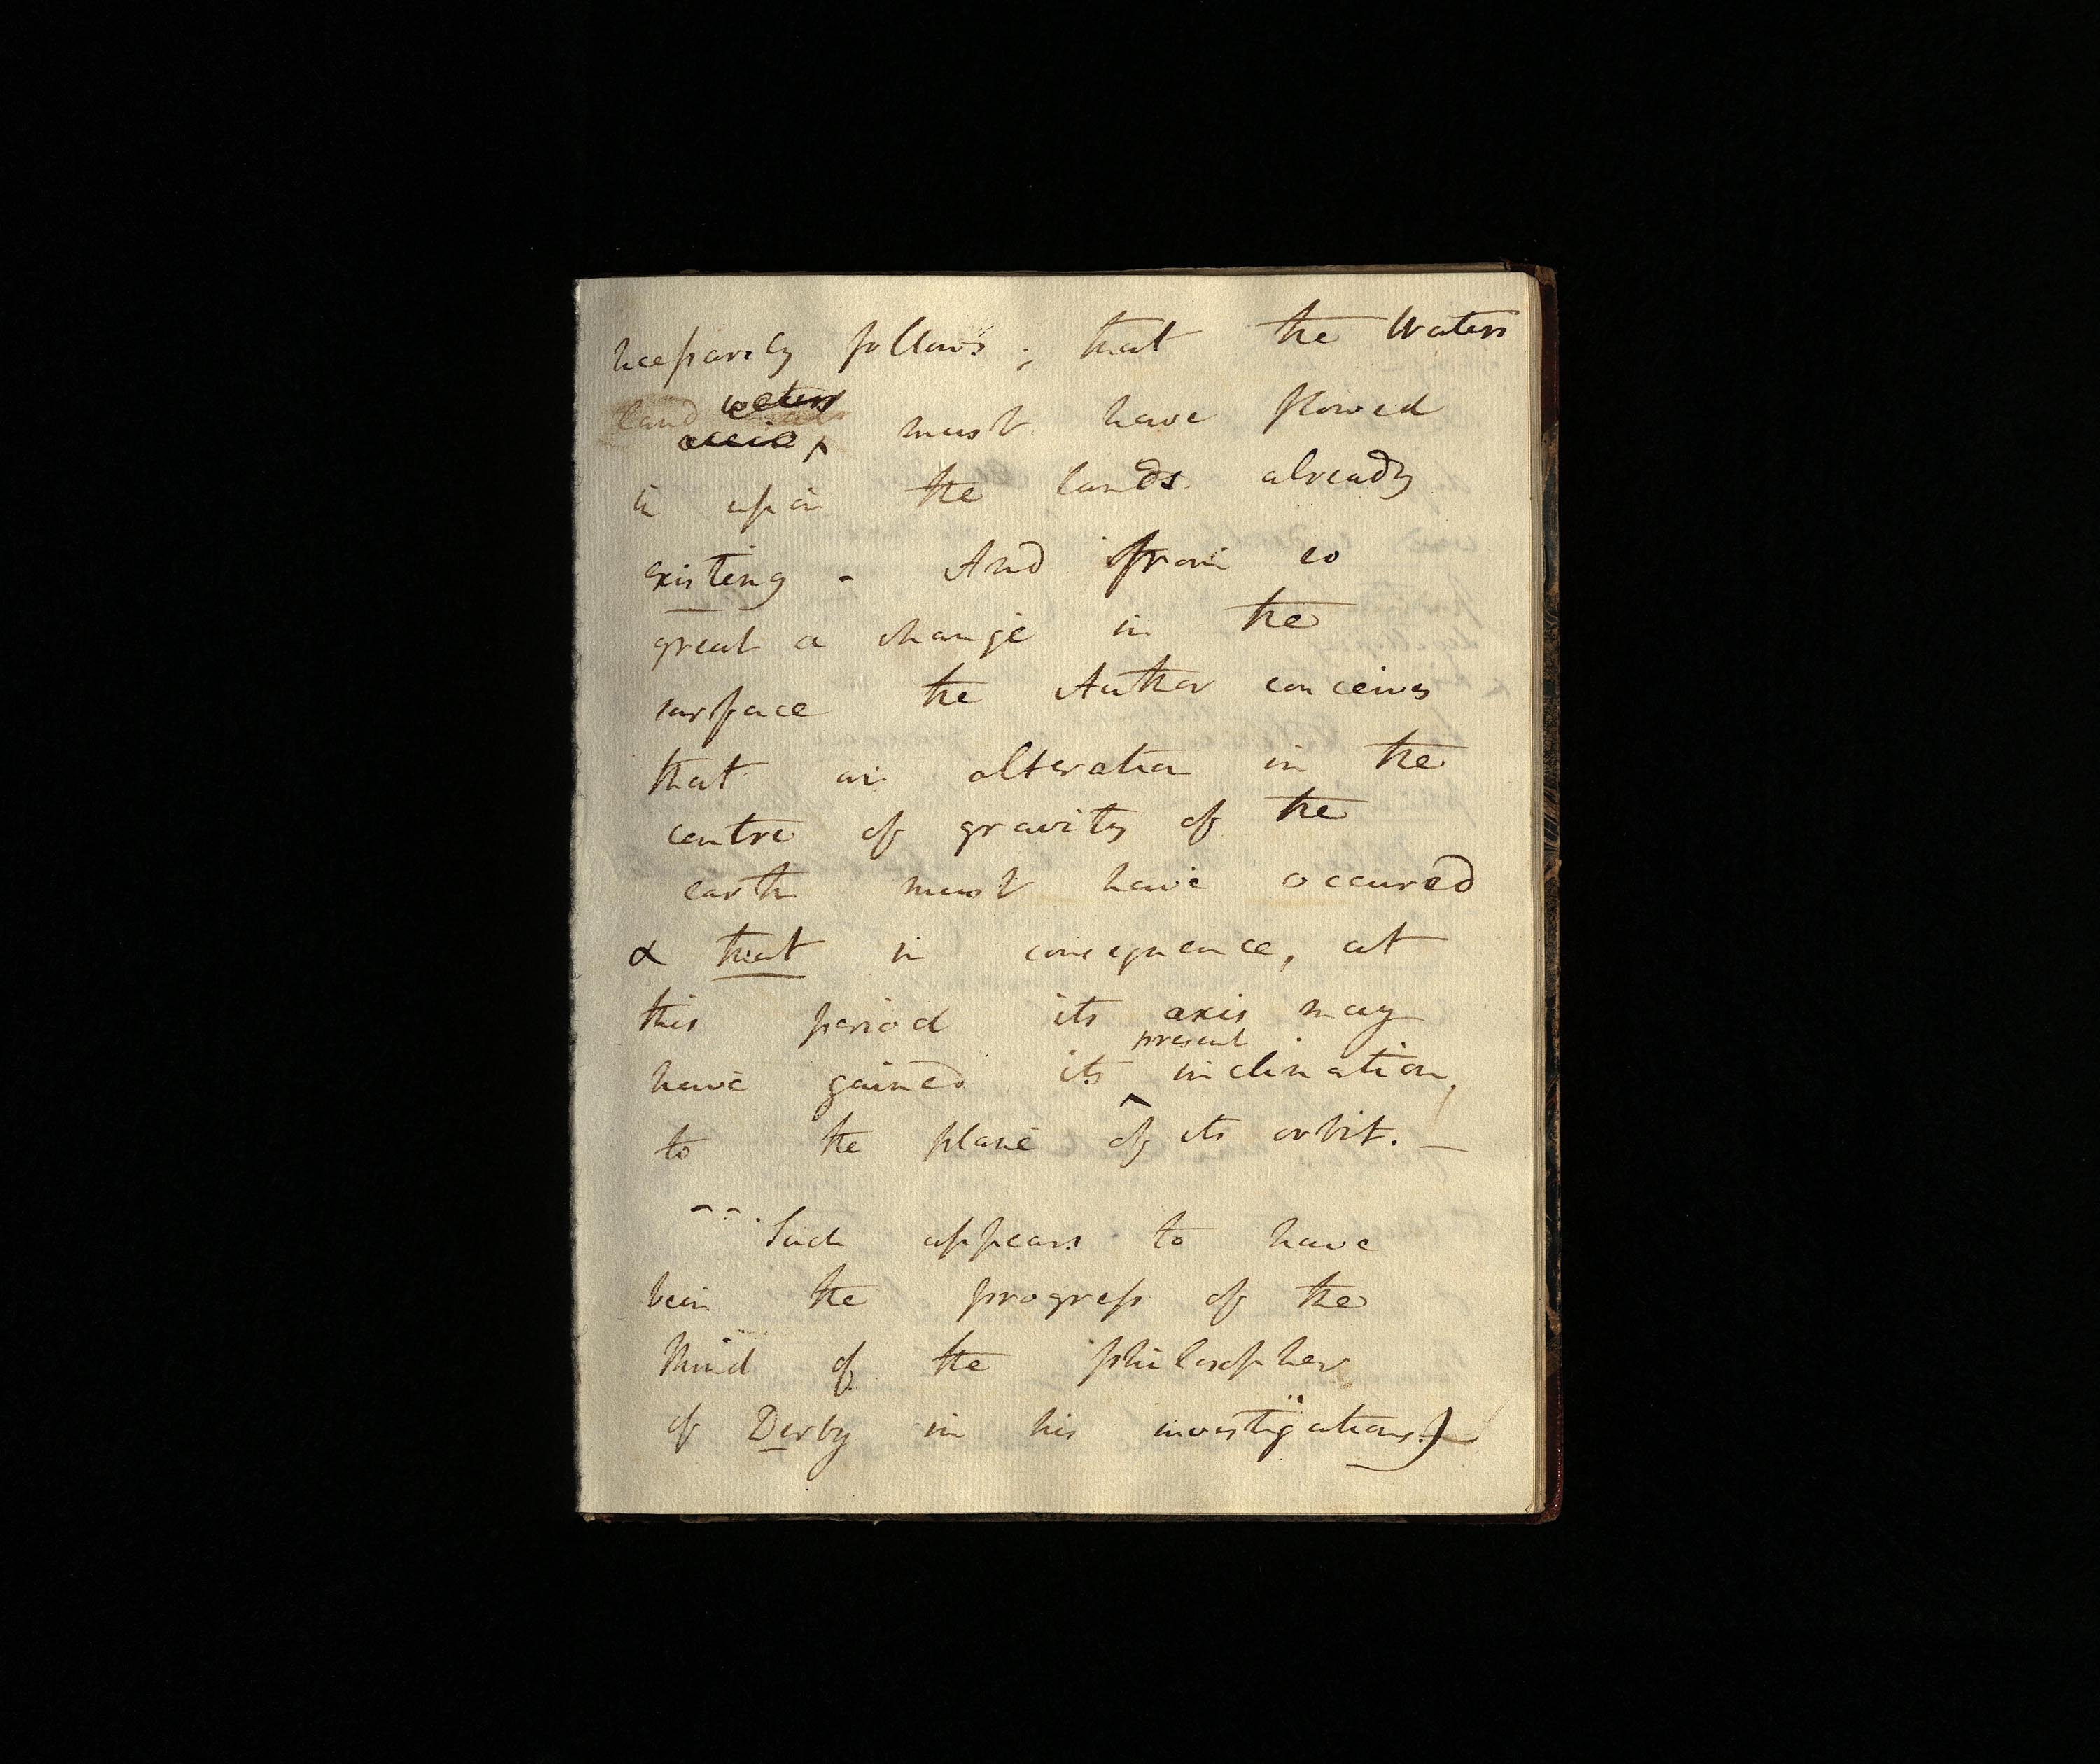 necessarily follows; that the Waters
land waters
must have flowed
in upon the lands already
existing - And from so
great a change in the
surface the Author conceives
that an alteration in the
centre of gravity of the
earth must have occured
& that in consequence, at
this period its axis may
present
have gained its ^ inclination,
to the plane of its orbit. —
- - . Such appears to have
been the progress of the
Mind of the philosopher
of Derby in his investigations.)